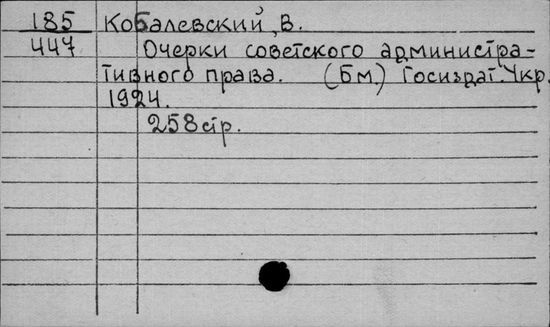 185 Кобалевский, В.
447. Очерки советского администра-
тивного права. (Бм.) Госиздат. Укр.
1924.
258 стр.